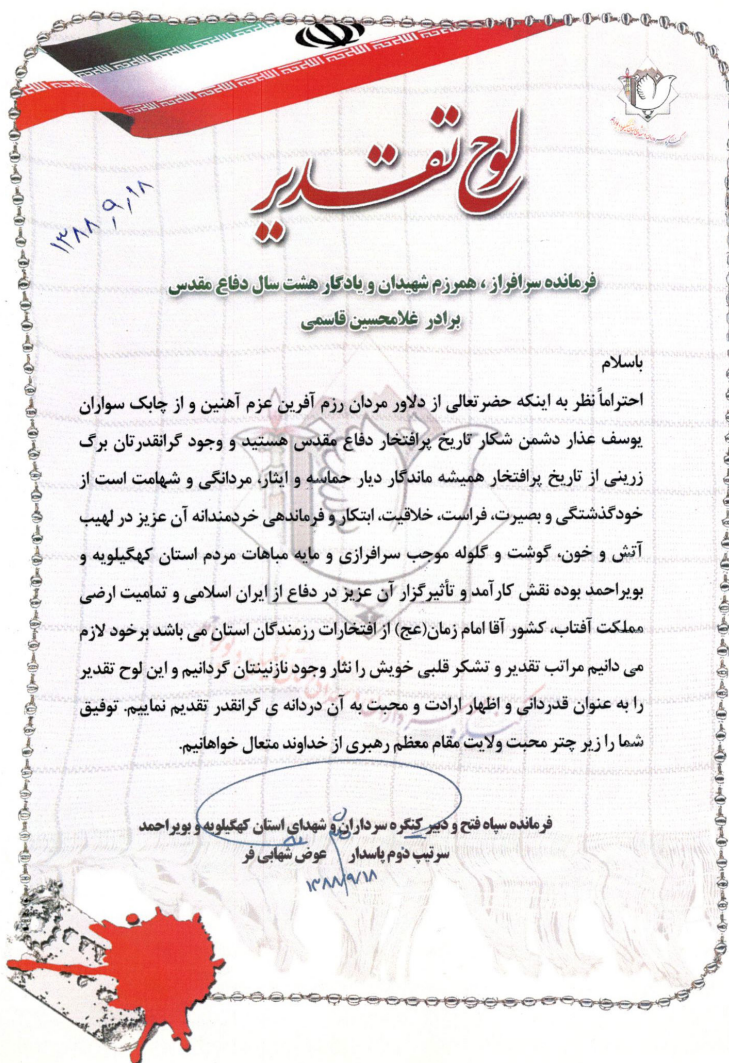 لوح تقدیر
۱۳۸۸/۹/۱۸
فرمانده سرافراز ، همرزم شهیدان و یادگار هشت سال دفاع مقدس
برادر غلامحسین قاسمی
باسلام
احتراماً نظر به اینکه حضرتعالی از دلاور مردان رزم آفرین عزم آهنین و از چابک سواران
یوسف عذار دشمن شکار تاریخ پرافتخار دفاع مقدس هستید و وجود گرانقدرتان برگ
زرینی از تاریخ پرافتخار همیشه ماندگار دیار حماسه و ایثار، مردانگی و شهامت است از
خودگذشتگی و بصیرت، فراست، خلاقیت، ابتکار و فرماندهی خردمندانه آن عزیز در لهیب
آتش و خون، گوشت و گلوله موجب سرافرازی و مایه مباهات مردم استان کهگیلویه و
بویراحمد بوده نقش کارآمد و تأثیرگزار آن عزیز در دفاع از ایران اسلامی و تمامیت ارضی
مملکت آفتاب، کشور آقا امام زمان(عج) از افتخارات رزمندگان استان می باشد برخود لازم
می دانیم مراتب تقدیر و تشکر قلبی خویش را نثار وجود نازنینتان گردانیم و این لوح تقدیر
را به عنوان قدردانی و اظهار ارادت و محبت به آن دردانه ی گرانقدر تقدیم نماییم. توفیق
شما را زیر چتر محبت ولایت مقام معظم رهبری از خداوند متعال خواهانیم.
فرمانده سپاه فتح و دبیر کنگره سرداران و شهدای استان کهگیلویه و بویراحمد
سرتیپ دوم پاسدار عوض شهابی فر
۱۳۸۸/۹/۱۸